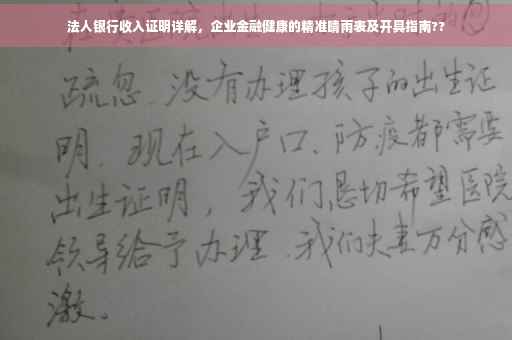 法人银行收入证明详解，企业金融健康的精准晴雨表及开具指南??
疏忽.没有办理孩子的出生证
明.现在入户口、防疫都需要
出生证明，我们恳切希望医院
领导给予办理.我们夫妻万分感
激。